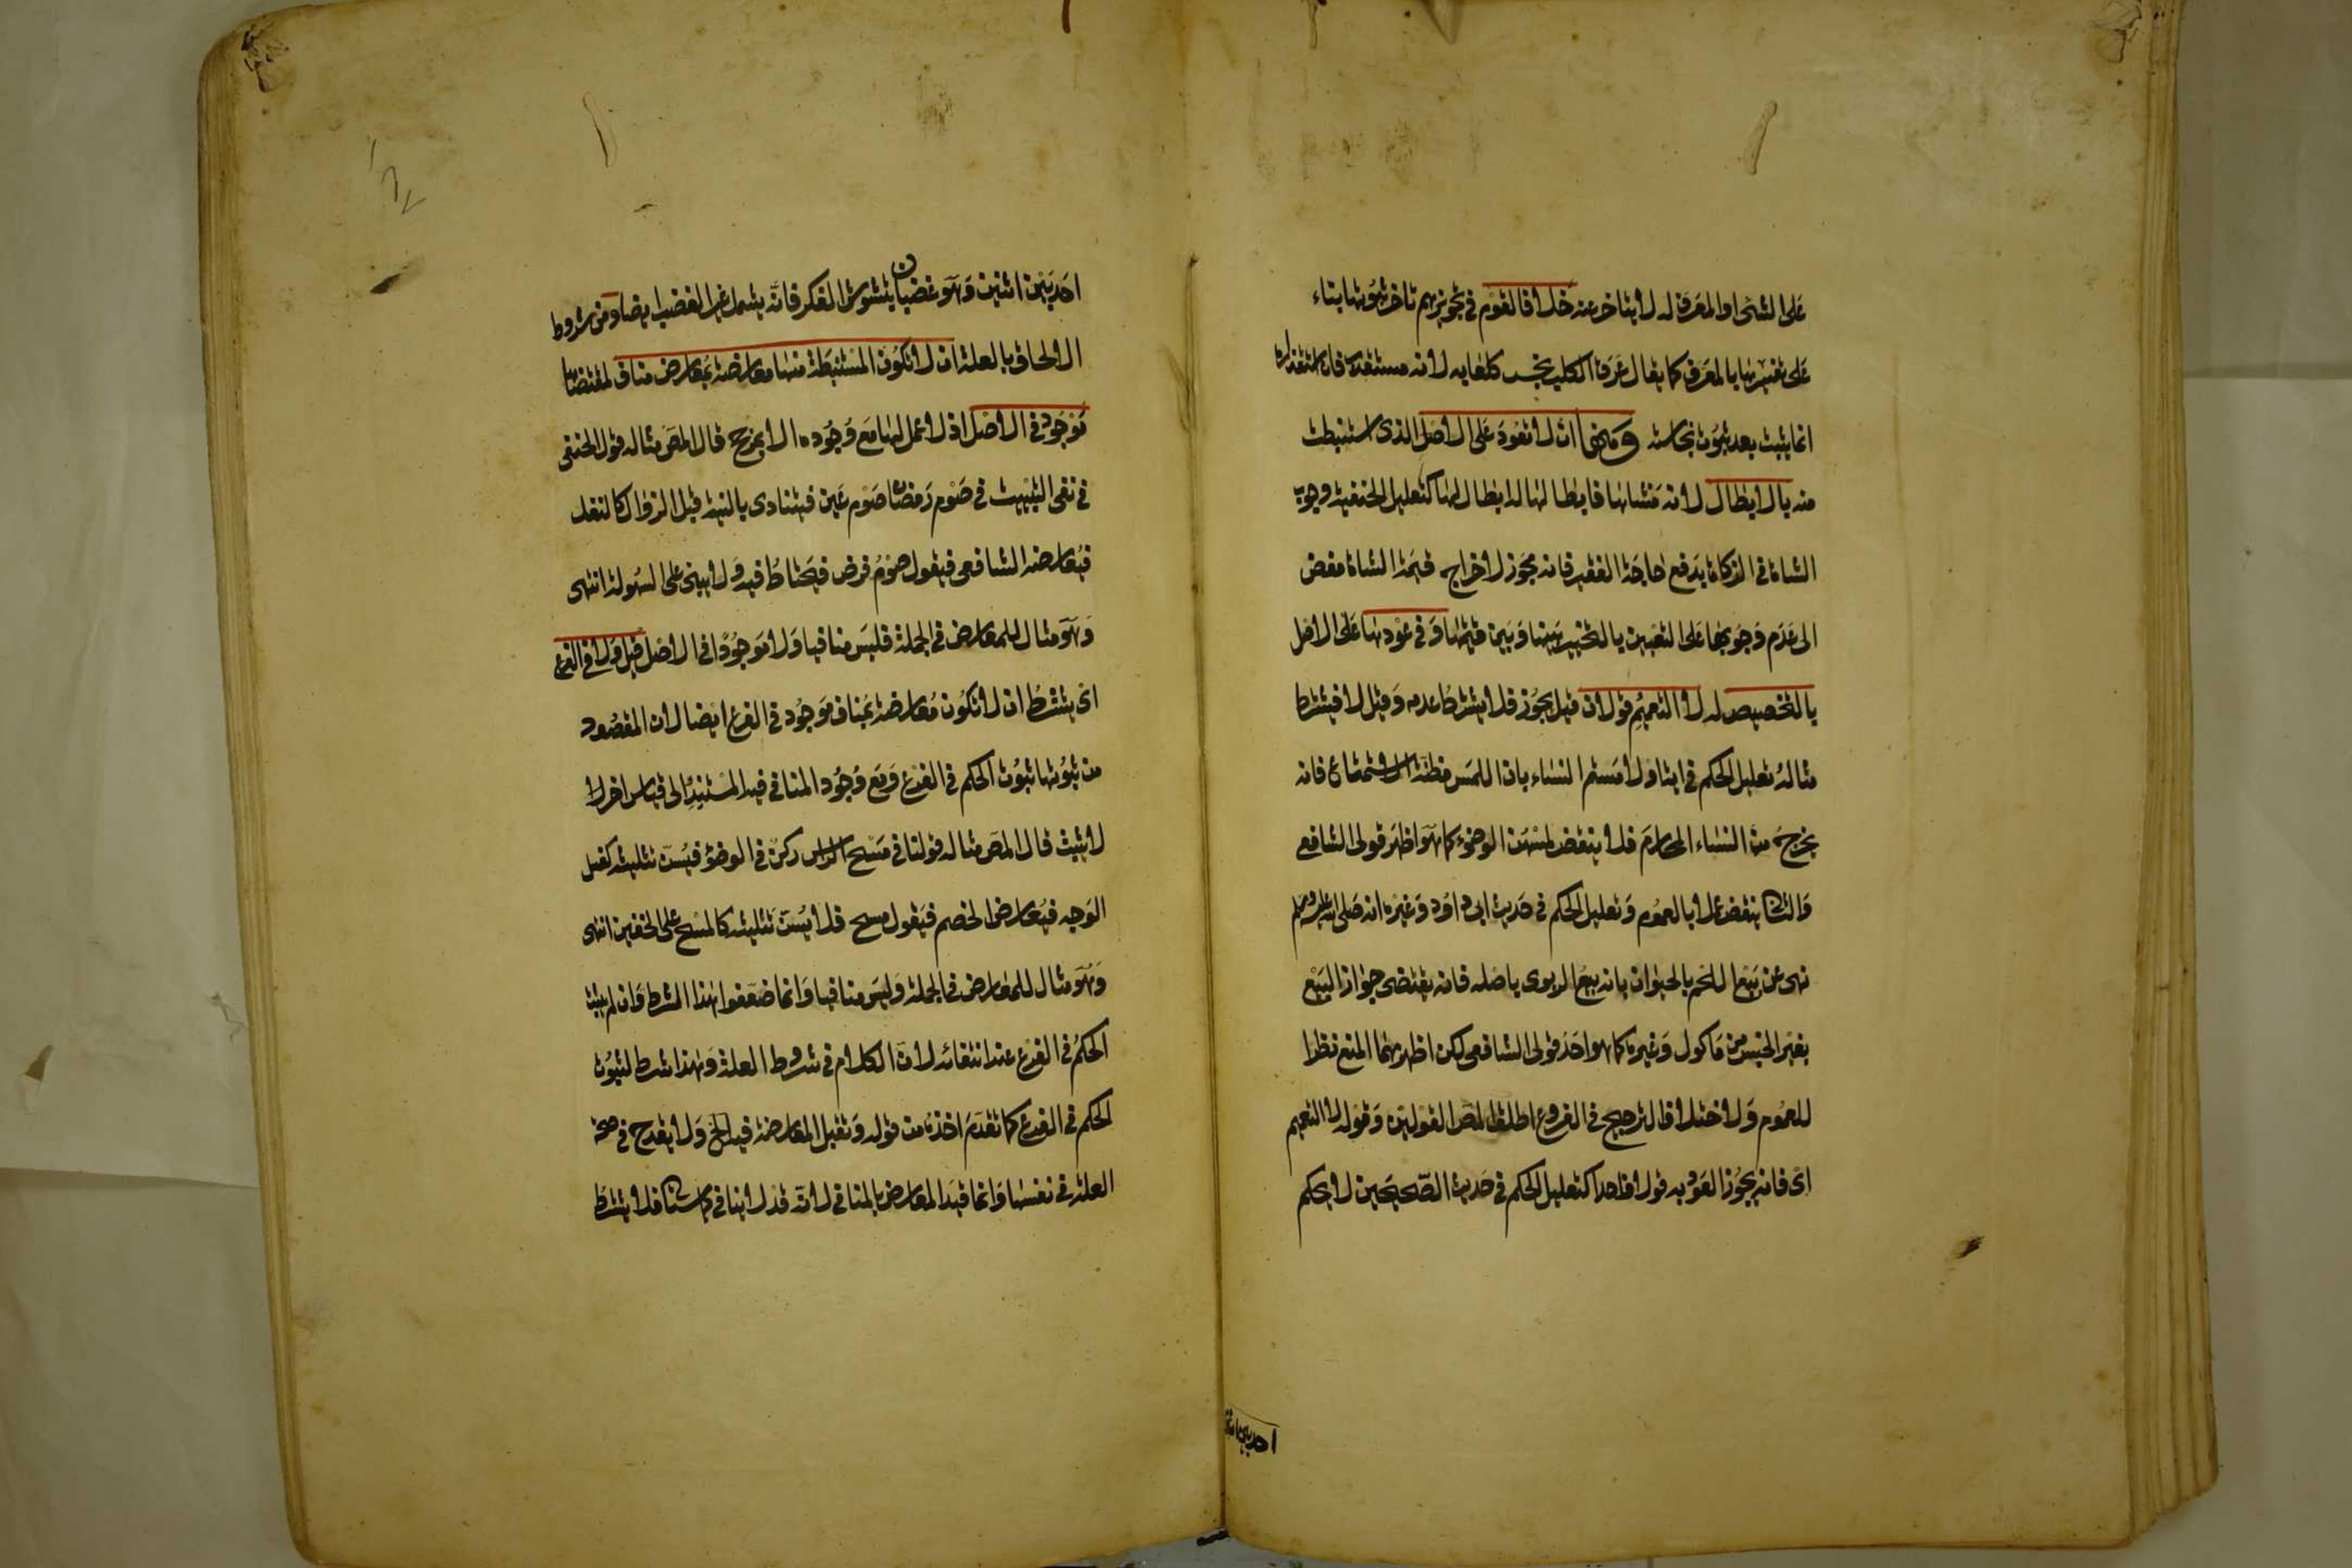 على الشىء او المعرف له لا يتاخر عنه خلافا لقوم فى تجويزهم تاخر ثبوتها بناء
على تفسيرها بالمعرف كما يقال عرق الكلب نجس كلعابه لانه مستقذر فان استقذاره
انما يثبت بعد ثبوت نجاسته ومنها ان لا تعود على الاصل الذى استنبطت
منه بالابطال لانه منشاها فابطالها له ابطال لها كتعليل الحنفية وجوب
الشاة فى الزكاة بدفع حاجة الفقير فانه مجوز لاخراج قيمة الشاة مفض
الى عدم وجوبها على التعيين بالتخيير بينها وبين قيمتها وفى عودها على الاصل
بالتخصيص له لا التعميم قولان قيل يجوز فلا يشترط عدمه وقيل لا فيشترط
مثاله تعليل الحكم فى اية او لامستم النساء بان اللمس مظنة الاستمتاع فانه
يخرج من النساء المحارم فلا ينقض لمسهن الوضوء كما هو اظهر قولى الشافعى
والثانى ينقض عملا بالعموم وتعليل الحكم فى حديث ابى داود وغيره انه صلى الله عليه وسلم
نهى عن بيع اللحم بالحيوان بانه بيع الربوى باصله فانه يقتضى جواز البيع
بغير الجنس من ماكول وغيره كما هو احد قولى الشافعى لكن اظهرهما المنع نظرا
للعموم ولاختلاف الترجيح فى الفروع اطلق المص القولين وقوله لا التعميم
اى فانه يجوز العود به قولا واحدا كتعليل الحكم فى حديث الصحيحين لا يحكم
احد بين اثنين
احد بين اثنين وهو غضبان بتشويش الفكر فانه يشمل غير الغضب ايضا ومن شروط
الالحاق بالعلة ان لا تكون المستنبطة منها معارضة بمعارض مناف لمقتضاها
موجود فى الاصل اذ لا عمل لها مع وجوده الا بمرجح قال المص مثاله قول الحنفى
فى نفى التبييت فى صوم رمضان صوم عين فيتادى بالنية قبل الزوال كالنفل
فيعارضه الشافعى فيقول صوم فرض فيحتاط فيه ولا يبنى على السهولة انتهى
وهو مثال للمعارض فى الجملة فليس منافيا ولا موجودا فى الاصل قيل ولا فى الفرع
اى يشترط ان لا تكون معارضة بمناف موجود فى الفرع ايضا لان المقصود
من ثبوتها ثبوت الحكم فى الفرع ومع وجود المنافى فيه المستند الى قياس اخر لا
لا يثبت قال المص مثاله قولنا فى مسح الراس ركن فى الوضؤ فيسن تثليثه كغسل
الوجه فيعارض الخصم فيقول مسح فلا يسن تثليثه كالمسح على الخفين انتهى
وهو مثال للمعارض فى الجملة وليس منافيا وانما ضعفوا هذا الشرط وان لم يثبت
الحكم فى الفرع عند انتفائه لان الكلام فى شروط العلة وهذا شرط لثبوت
الحكم فى الفرع كما تقدم اخذه من قوله وتقبل المعارضة فيه الخ ولا يقدح فى صحة
العلة فى نفسها وانما قيد المعارض بالمنافى لانه قد لا ينافى كما سياتى فلا يشترط